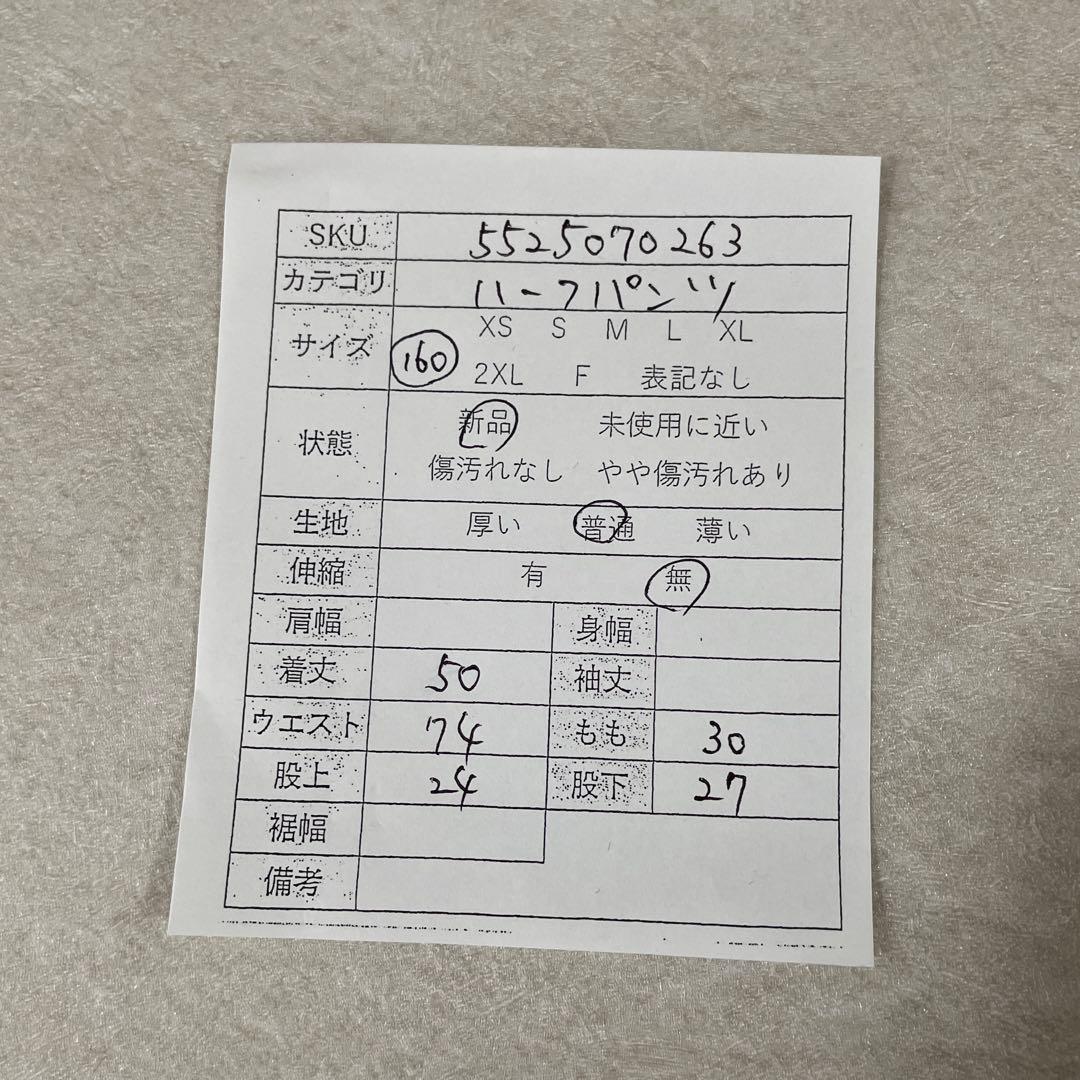 SKU 5525070263
カテゴリ ハーフパンツ
サイズ XS S M L XL
160 2XL F 表記なし
状態 新品 未使用に近い
傷汚れなし やや傷汚れあり
生地 厚い 普通 薄い
伸縮 有 無
肩幅 身幅
着丈 50 袖丈
ウエスト 74 もも 30
股上 24 股下 27
裾幅
備考